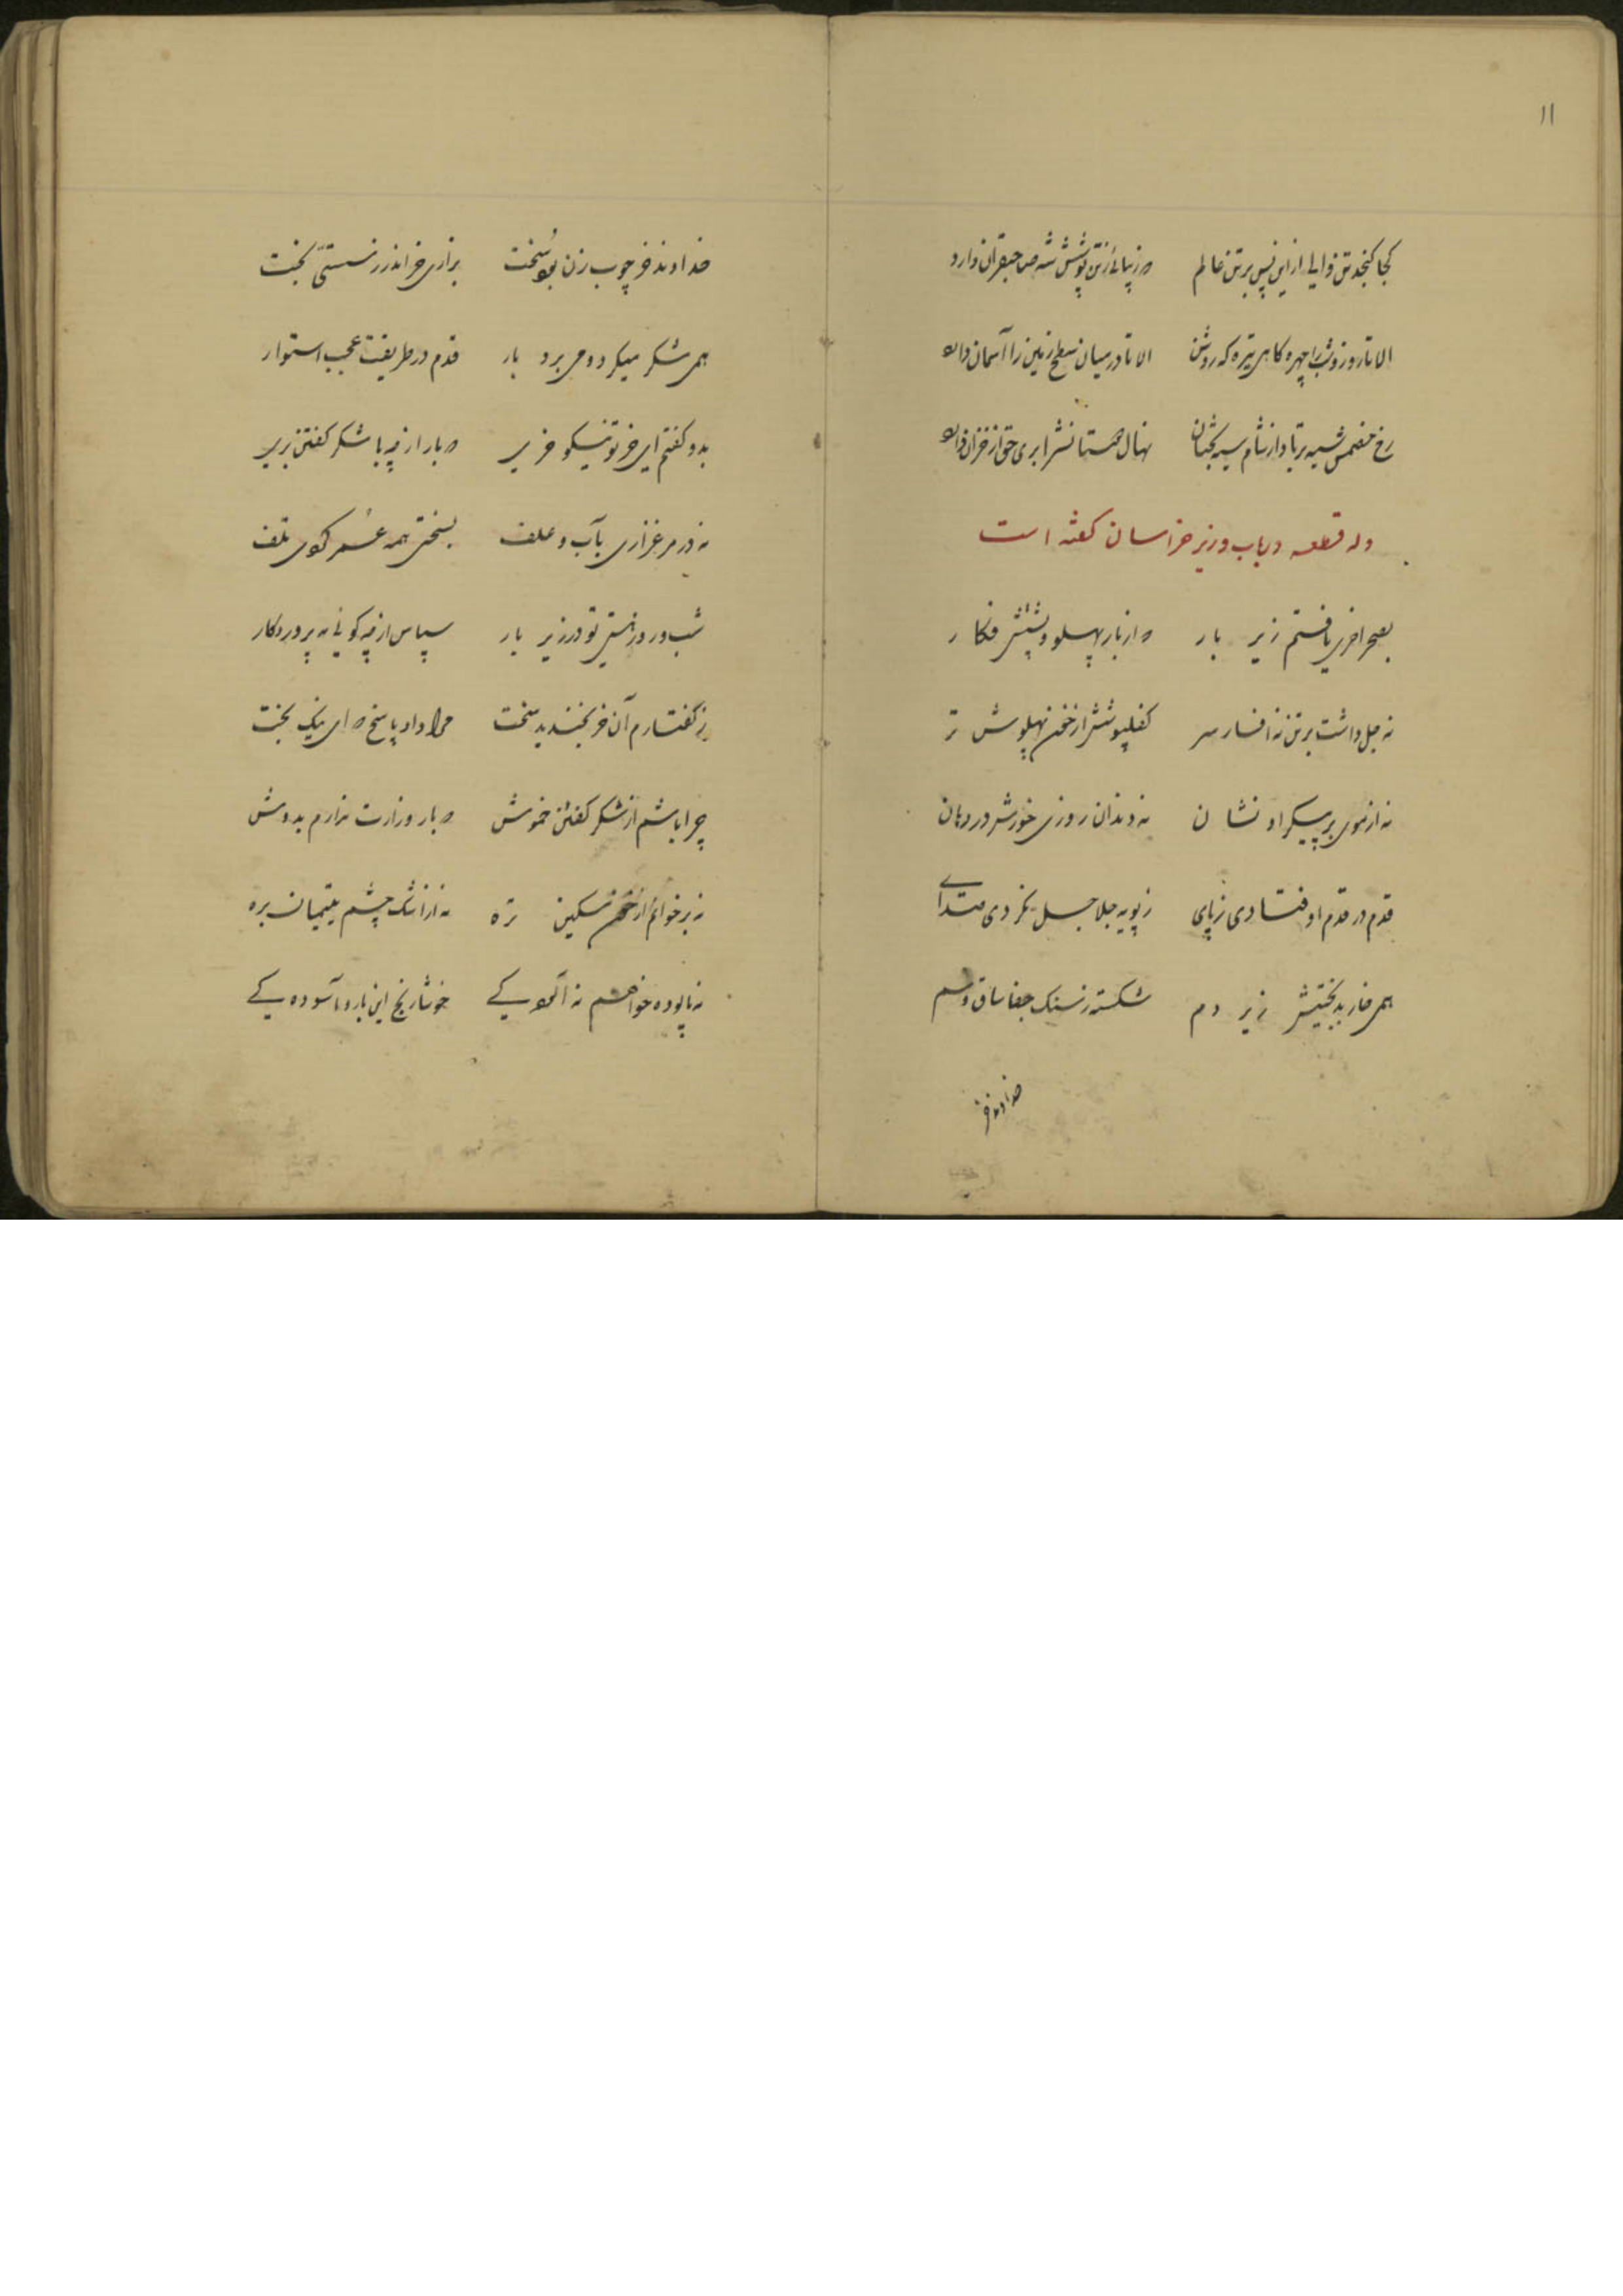 ۱۱
کجا کنجد تن والی ازین پس بر تن عالم که زیبایی زتن پوش شه صاحبقران دارد
الا تا روز و شب را چهره کاهی تیره که روشن الا تا در میان سطح زمین را آسمان دارد
رخ خصمش سیه بر باد از شام سیه بختان نهال هستانش را بری حق از خزان دارد
وله قطعه در باب وزیر خراسان گفته است
بصحرا خری یافتم زیر بار که از بار پهلو و پشتش فکار
نه جل داشت بر تن نه افسار سر کفلپوشش از خون پهلوش تر
نه از موی بر پیکر او نشان نه دندان روزی خورش در دهان
قدم در قدم اوفتادی ز پای ز پویه جلاجل نکردی صدای
همی خار بدبختیش زیر دم شکسته ز سنک جفا ساق و سم
خداوند خر
خداوند خر چوب زن سخت برازی خر اندر ز سستی بخت
همی شکر میکرد و می برد بار قدم در طریقت عجب استوار
بدو کفتم ای خر تو نیکو خری که بار از چه با شکر کفتن بری
نه در مرغزاری بآب و علف بسختی همه عمر کردی تلف
شب و روز هستی تو در زیر بار سپاس از چه کوئی به پروردکار
ز کفتارم آن خر بخندید سخت مرا داد پاسخ که ای نیک بخت
چرا باشم از شکر کفتن خموش که بار وزارت ندارم بدوش
نه بر خوانم از خون مسکین تره نه از اشک چشم یتیمان بره
نه پالوده خواهم نه آلودکی خوشا رنج این بار و آسودکی